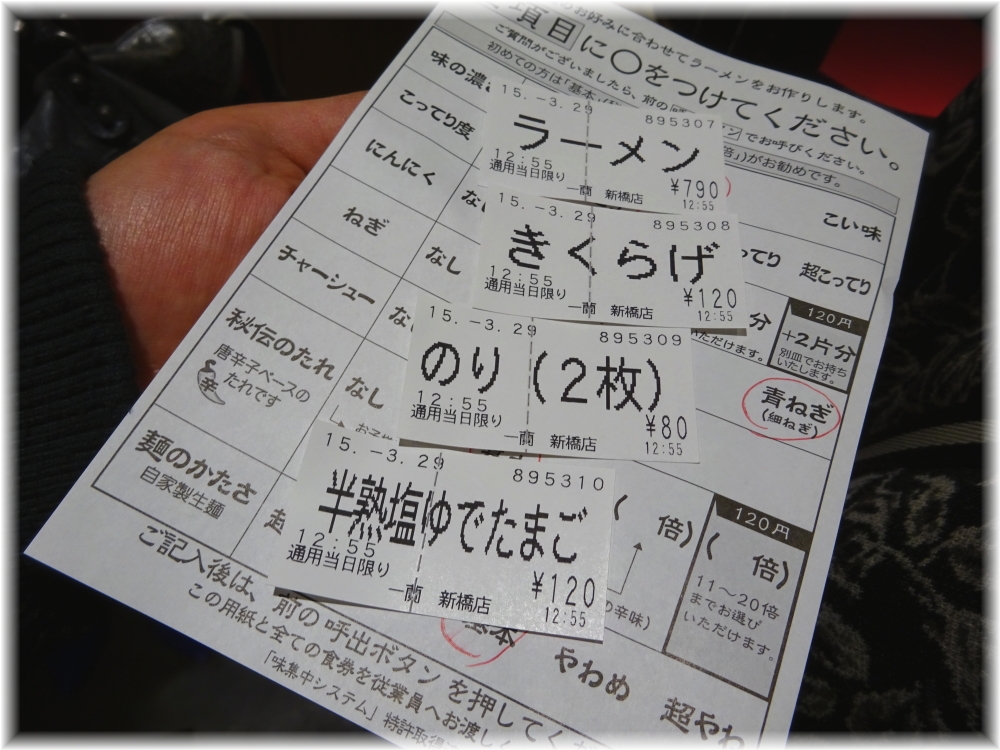 のお好みに合わせてラーメンをお作りします。
項目に○をつけてください。
ご質問がございましたら、前の
でお呼びください。
初めての方は「基本
倍」)がお勧めです。
味の濃
こい味
こってり度
超こってり
にんにく
120円
+2片分
別皿でお持ち
いたします。
ねぎ
なし
青ねぎ
(細ねぎ)
チャーシュー
秘伝のたれ
唐辛子ベースの
たれです
辛
なし
倍)
120円
( 倍)
11〜20倍
までお選び
いただけます。
の辛味)
麺のかたさ
自家製生麺
基本
やわめ
超やわ
ご記入後は、前の呼出ボタンを押してく
この用紙と全ての食券を従業員へお渡しく
「味集中システム」特許取得
15.-3.29
895307
ラーメン
12:55
通用当日限り
一蘭 新橋店
¥790
12:55
15.-3.29
895308
きくらげ
12:55
通用当日限り
一蘭 新橋店
¥120
12:55
15.-3.29
895309
のり(2枚)
12:55
通用当日限り
一蘭 新橋店
¥80
12:55
15.-3.29
895310
半熟塩ゆでたまご
12:55
通用当日限り
一蘭 新橋店
¥120
12:55